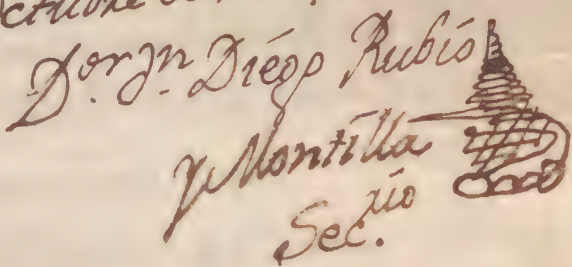 D.or Jn. Diégo Rubió
y Montílla
Sec.rio